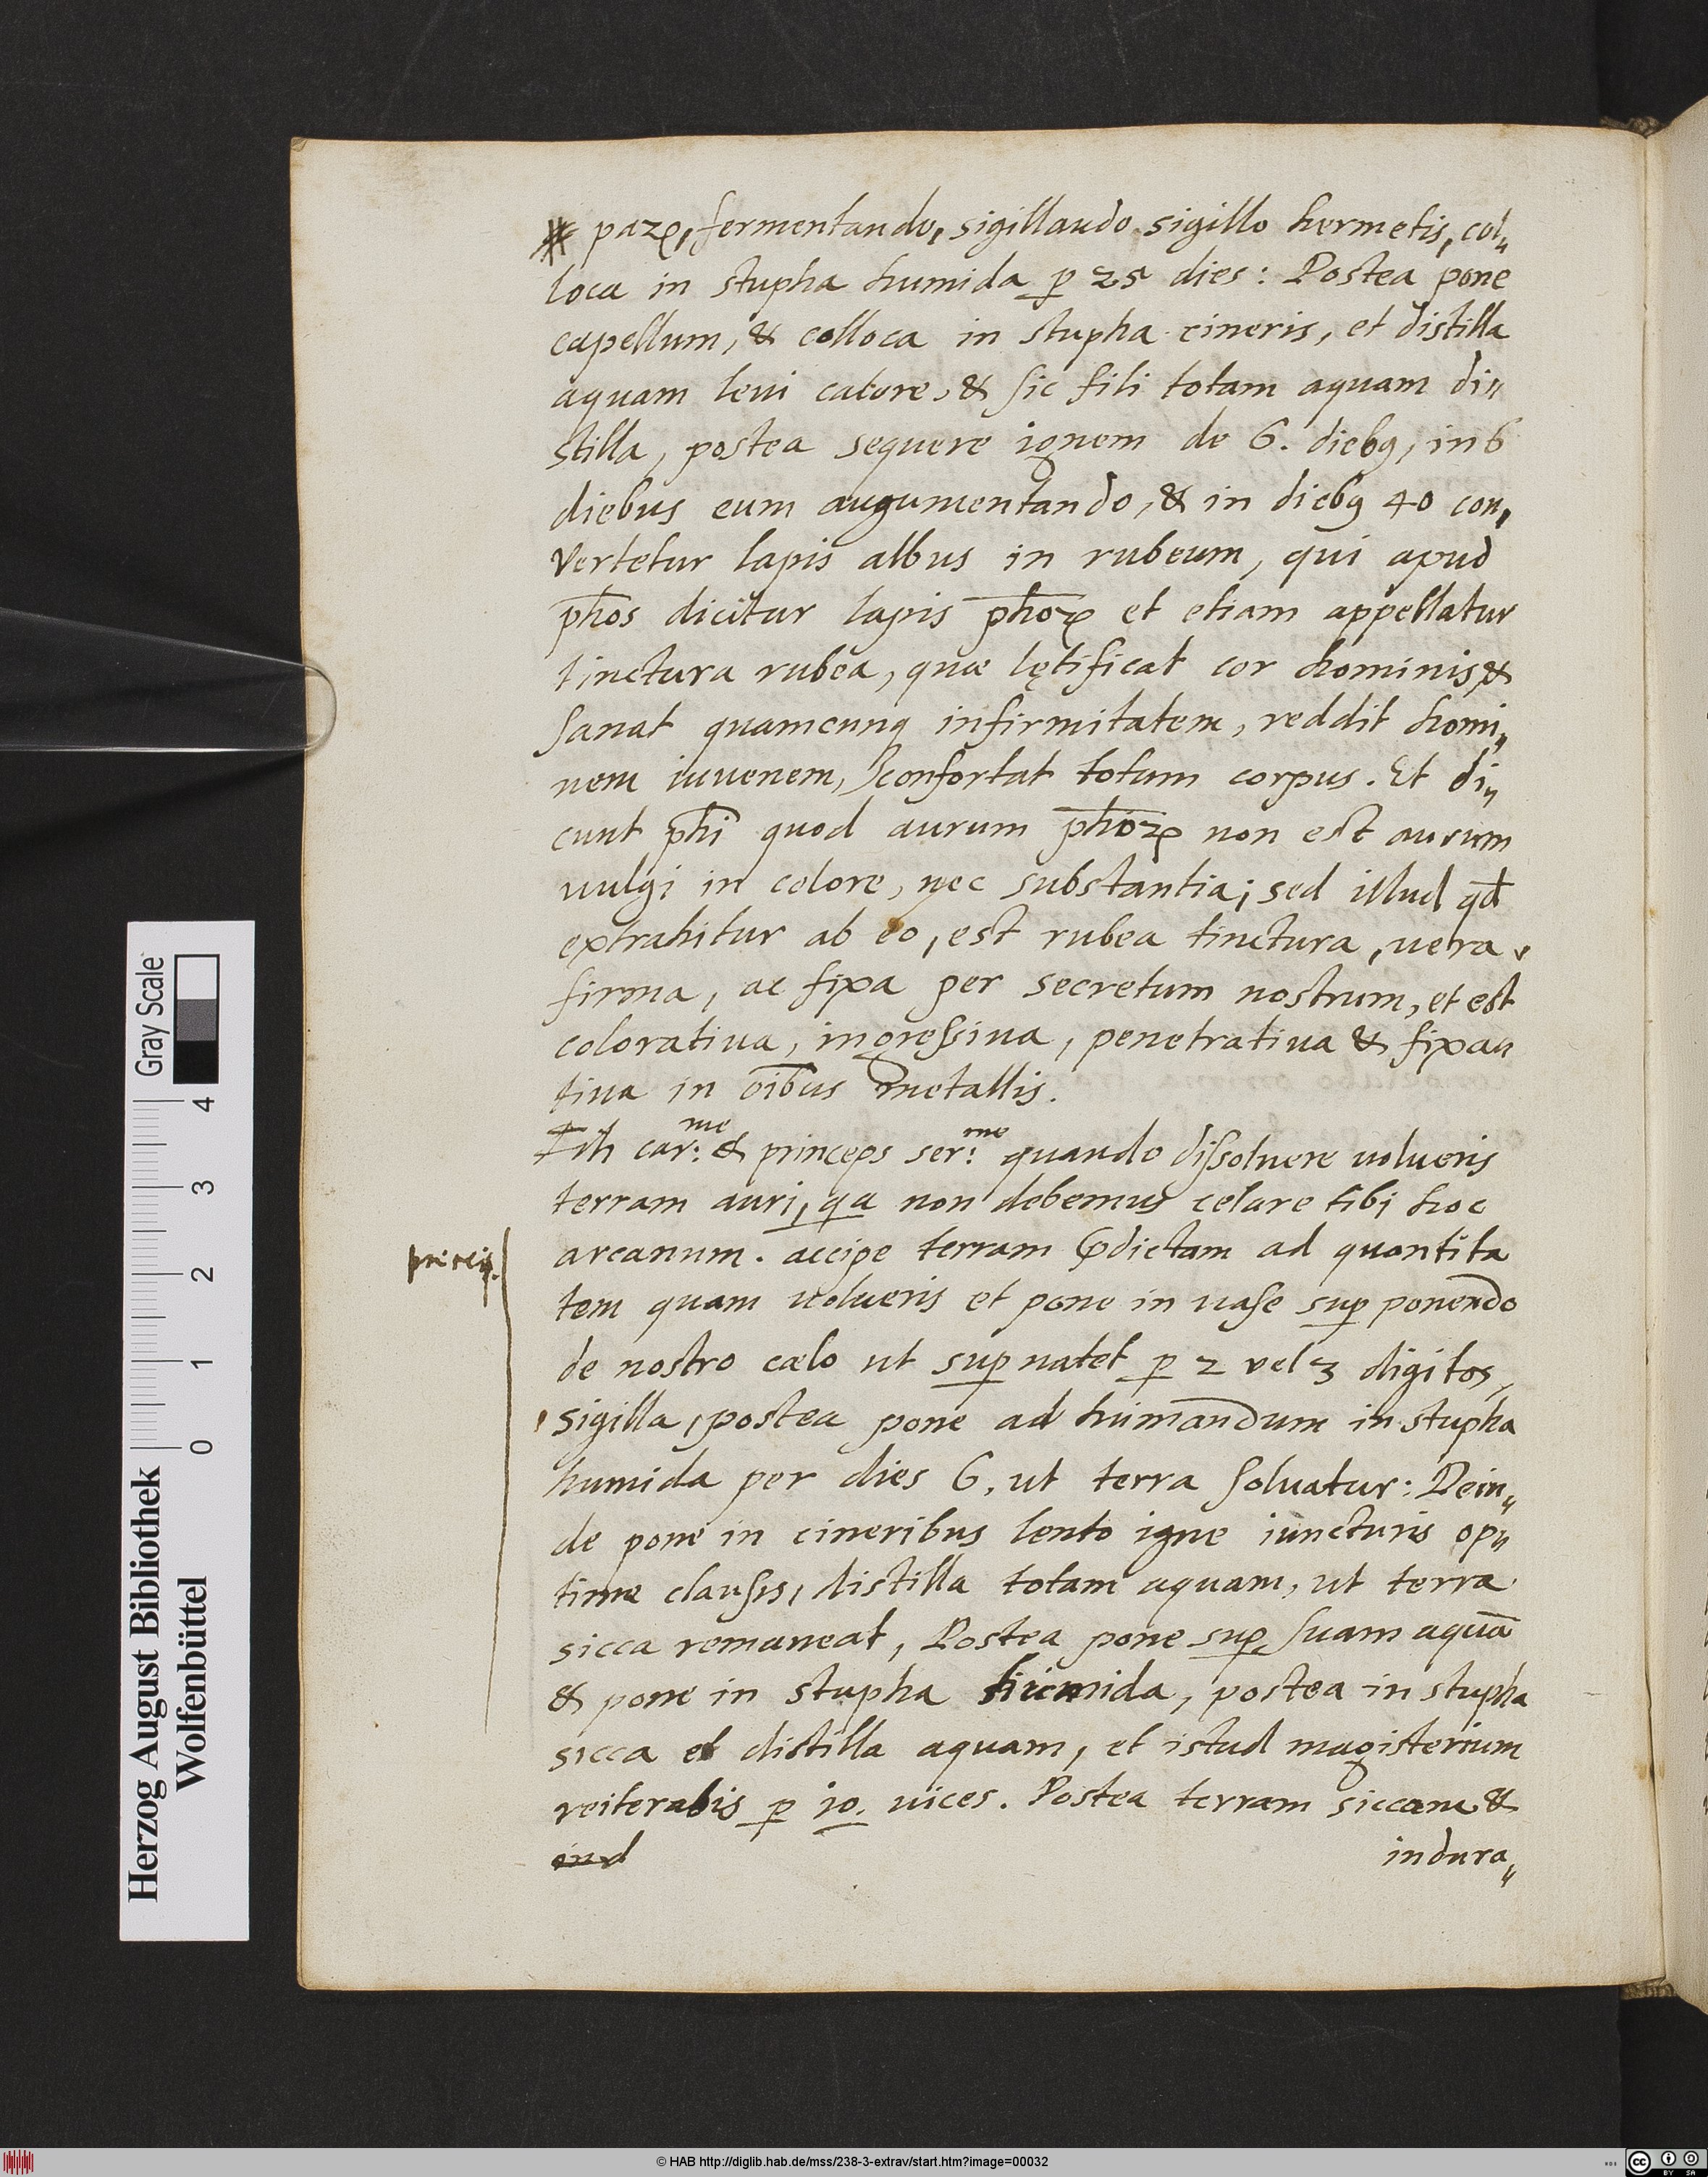 paꝝ, fermentando, sigillando sigillo hermetis, col„
loca in stupha humida ꝑ 25 dies: Postea pone
capellum, & colloca in stupha cineris, et distilla
aquam leui calore, & sic fili totam aquam di„
stilla, postea sequere ignem de 6. diebꝯ, in 6
diebus eum augumentando, & in diebꝯ 40 con„
vertetur lapis albus in rubeum, qui apud
ph̄os dicitur lapis ph̄oꝝ et etiam appellatur
tinctura rubea, quæ lętificat cor hominis, &
sanat quamcunq infirmitatem, reddit homi„
nem iuuenem, confortat totum corpus. Et di„
cunt ph̄i quod aurum ph̄oꝝ non est aurum
uulgi in colore, nec substantia; sed illud qd̄
extrahitur ab eo, est rubea tinctura, uera,
firma, ac fixa per secretum nostrum, et est
coloratiua, ingressiua, penetratiua & fixa„
tiua in oībus metallis.
Fili car:me & princeps ser:me quando dissoluere uolueris
terram auri, qa non debemus celare tibi hoc
arcanum. accipe terram p̄dictam ad quantita
tem quam uolueris et pone in uase suꝑ ponendo
de nostro cælo ut suꝑnatet ꝑ 2 vel 3 digitos,
sigilla, postea pone ad humandum in stupha
humida per dies 6, ut terra soluatur: Dein„
de pone in cineribus lento igne iuncturis op„
time clausis, distilla totam aquam, ut terra
sicca remaneat, Postea pone suꝑ suam aquā
& pone in stupha humida, postea in stupha
sicca et distilla aquam, et istud magisterium
reiterabis ꝑ 10. uices. Postea terram siccam &
ind indura„
Herzog August Bibliothek
Wolfenbüttel
0 1 2 3 4
Gray Scale
© HAB http://diglib.hab.de/mss/238-3-extrav/start.htm?image=00032